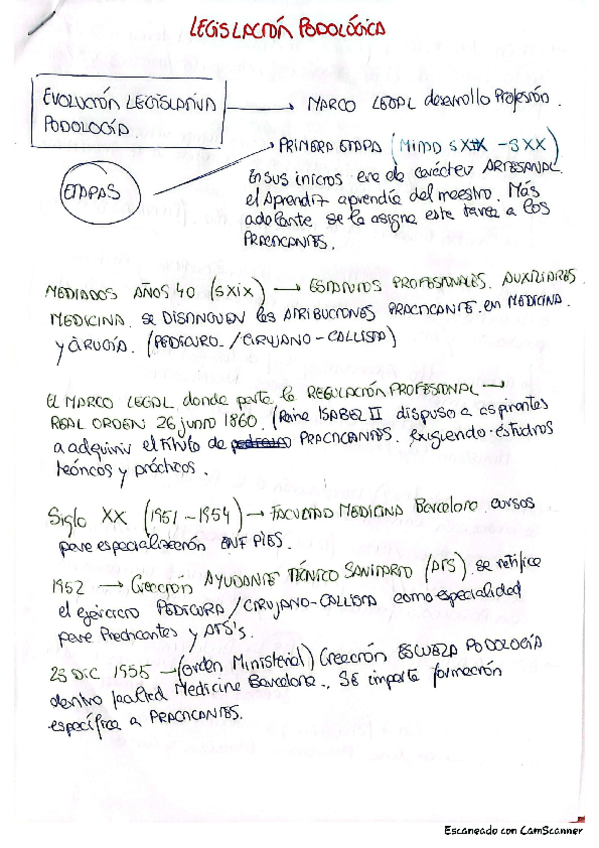 LEGISLACIÓN PODOLÓGICA
EVOLUCIÓN LEGISLATIVA
PODOLOGÍA.
MARCO LEGAL desarrollo Profesión.
PRIMERA ETAPA (Mitad SXIX - SXX)
ETAPAS
En sus inicios era de carácter ARTESANAL.
el Aprendiz aprendía del maestro. Más
adelante se le asigna esta tarea a los
PRACTICANTES.
MEDIADOS AÑOS 40 (SXiX) → ESTATUTOS PROFESIONALES. AUXILIARES
MEDICINA. se DISTINGUEN las ATRIBUCIONES PRACTICANTE en MEDICINA
y CIRUGÍA. (PEDICURO-/CIRUJANO-CALLISTA)
EL MARCO LEGAL donde parte la REGULACIÓN PROFESIONAL →
REAL ORDEN 26 junio 1860. (Reina ISABEL II dispuso a aspirantes
a adquirir el título de PRACTICANTES. exigiendo estudios
teóricos y prácticos.
Siglo XX (1951-1954) → FACULTAD MEDICINA Barcelona cursos
para especialización ENF PIES.
1952 → Creación AYUDANTE TÉCNICO SANITARIO (ATS) se ratifica
el ejercicio PEDICURA/CIRUJANO-CALLISTA como especialidad
para Practicantes y ATS's.
23 DIC 1955 → (Orden Ministerial) Creación ESCUELA PODOLOGÍA
dentro facultad Medicina Barcelona., SE imparte formación
específica a PRACTICANTES.
Escaneado con CamScanner